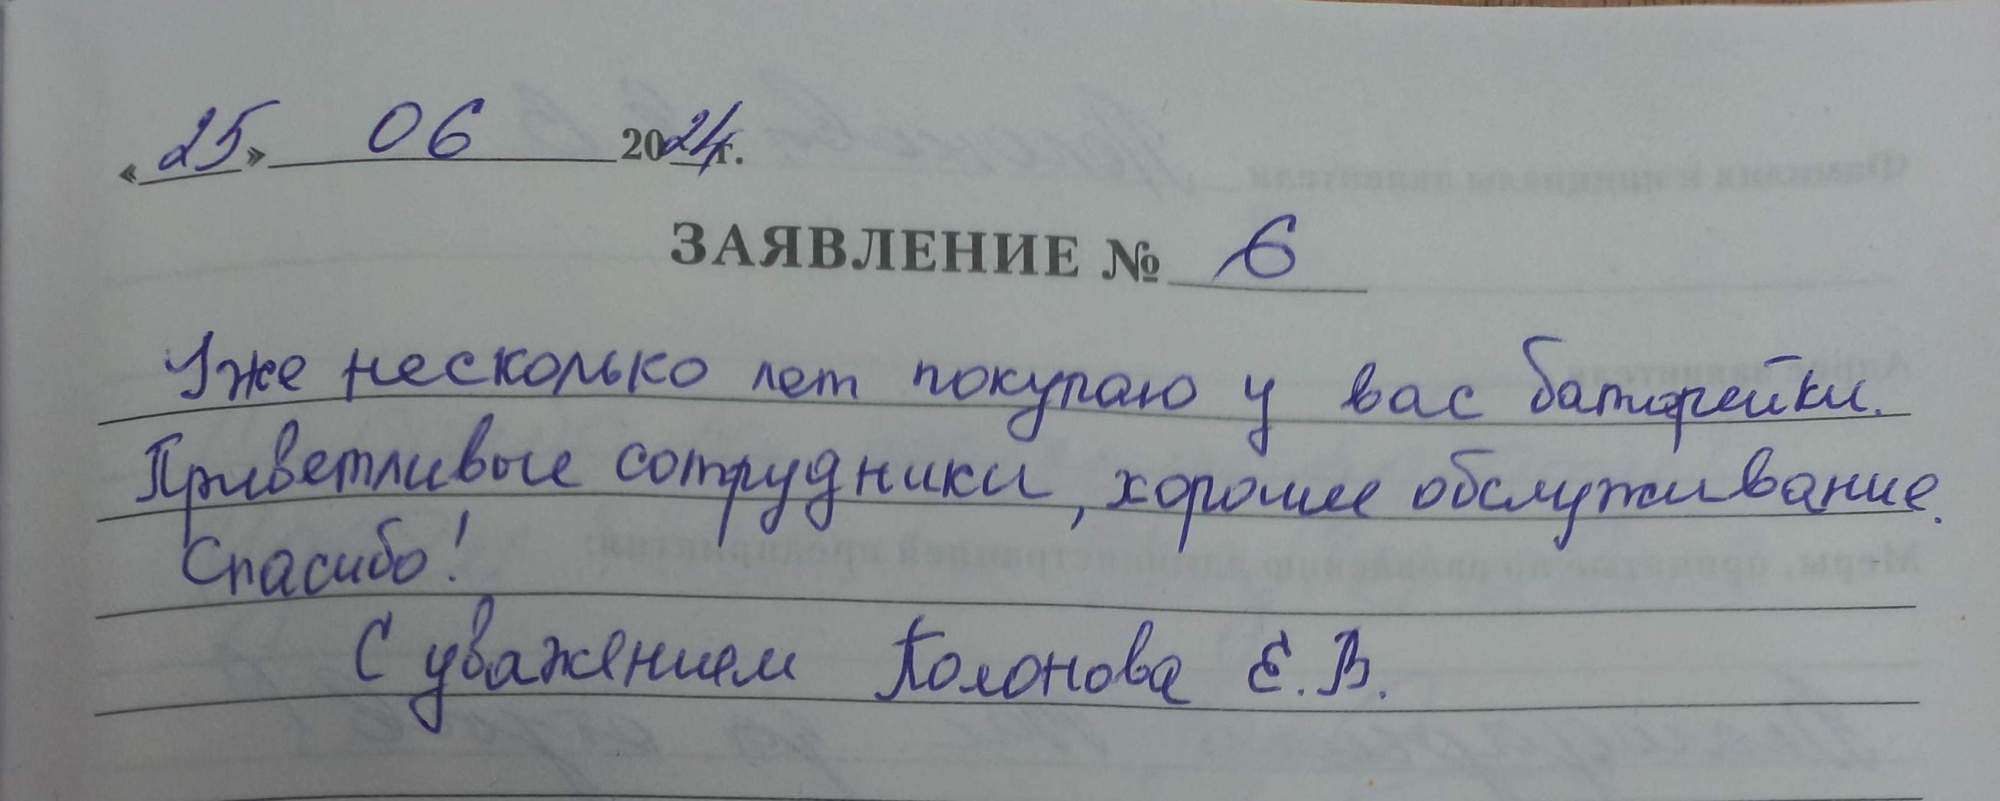 «25» 06 2024г.
ЗАЯВЛЕНИЕ № 6
Уже несколько лет покупаю у вас батарейки.
Приветливые сотрудники, хорошее обслуживание.
Спасибо!
С уважением Колонова Е.В.